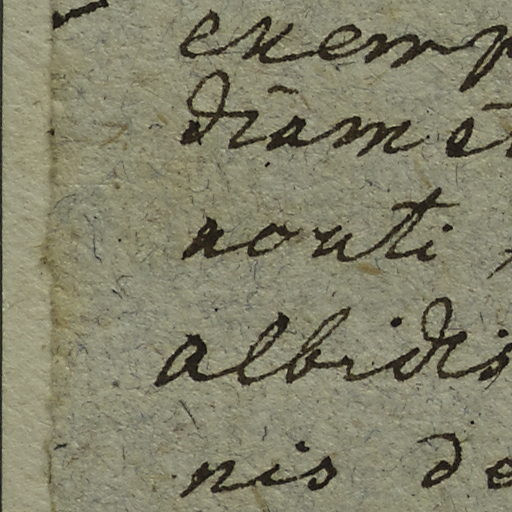 exemp
diam
acuti
albidis
nis de